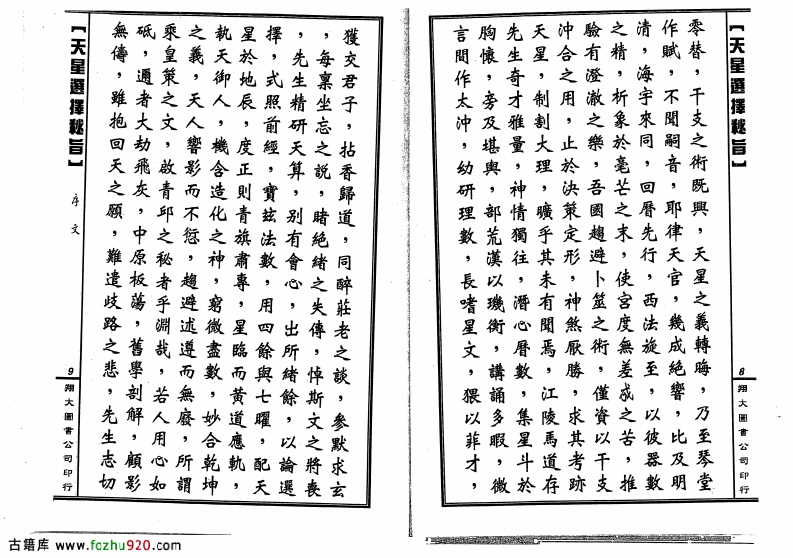 【天星選擇秘旨】
零替，干支之術既興，天星之義轉晦，乃至琴堂
作賦，不聞嗣音，耶律天官，幾成絕響，比及明
清，海宇來同，回曆先行，西法旋至，以彼器數
之精，析象於毫芒之末，使宮度無差忒之苦，推
驗有澄澈之樂，吾國趨避卜筮之術，僅資以干支
沖合之用，止於決策定形，神煞厭勝，求其考跡
天星，制割大理，曠乎其未有聞焉，江陵馬道存
先生奇才雅量，神情獨往，潛心曆數，集星斗於
胸懷，旁及堪輿，部荒漢以璣衡，講誦多暇，微
言間作太沖，幼研理數，長嗜星文，猥以菲才，
8
翔大圖書公司印行
獲交君子，拈香歸道，同醉莊老之談，參默求玄
，每稟坐忘之說，睹絕緒之失傳，悼斯文之將喪
，先生精研天算，别有會心，出所緒餘，以論選
擇，式照前經，寶茲法數，用四餘與七曜，配天
星於地辰，度正則青旗肅專，星臨而黃道應軌，
軌天御人，機含造化之神，窮微盡數，妙合乾坤
之義，天人響影而不愆，趨避述遵而無廢，所謂
乘皇策之文，啟青邱之秘者乎淵哉，若人用心如
砥，邇者大劫飛灰，中原板蕩，舊學剖解，顧影
無儔，雖抱回天之願，難遣歧路之悲，先生志切
【天星選擇秘旨】
序文
9
翔大圖書公司印行
古籍库 www.fozhu920.com